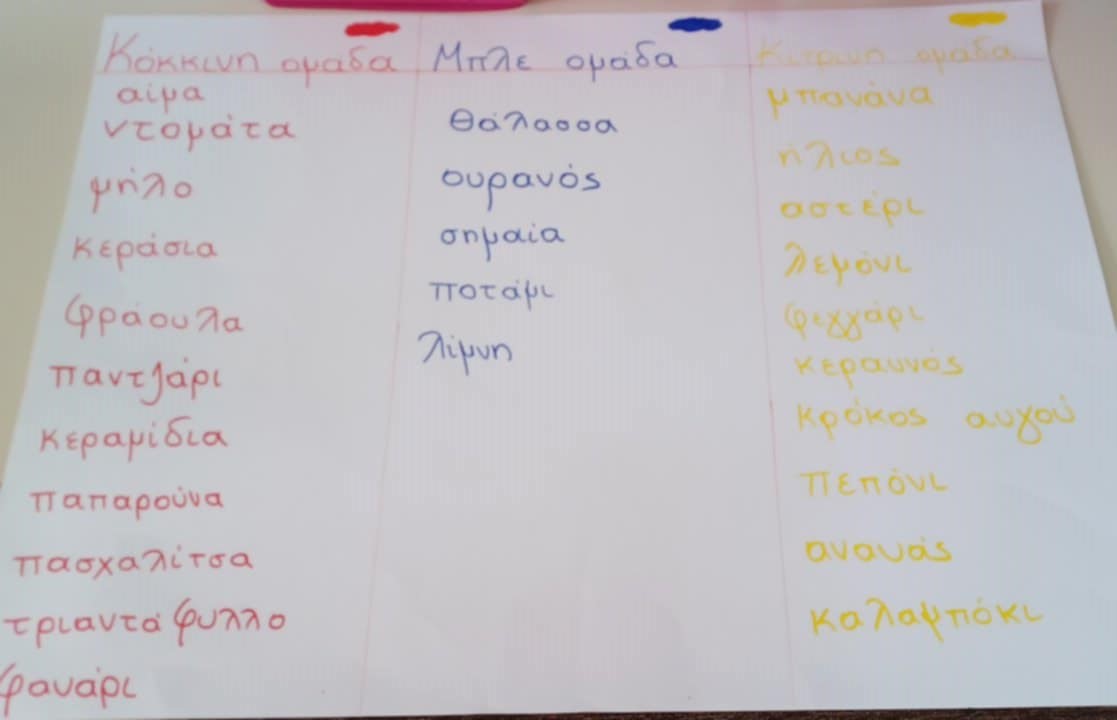 Κόκκινη ομάδα
αίμα
ντομάτα
μήλο
κεράσια
φράουλα
παντζάρι
κεραμίδια
παπαρούνα
πασχαλίτσα
τριαντάφυλλο
φανάρι
Μπλε ομάδα
θάλασσα
ουρανός
σημαία
ποτάμι
λίμνη
Κίτρινη ομάδα
μπανάνα
ήλιος
αστέρι
λεμόνι
φεγγάρι
κεραυνός
κρόκος αυγού
πεπόνι
ανανάς
καλαμπόκι